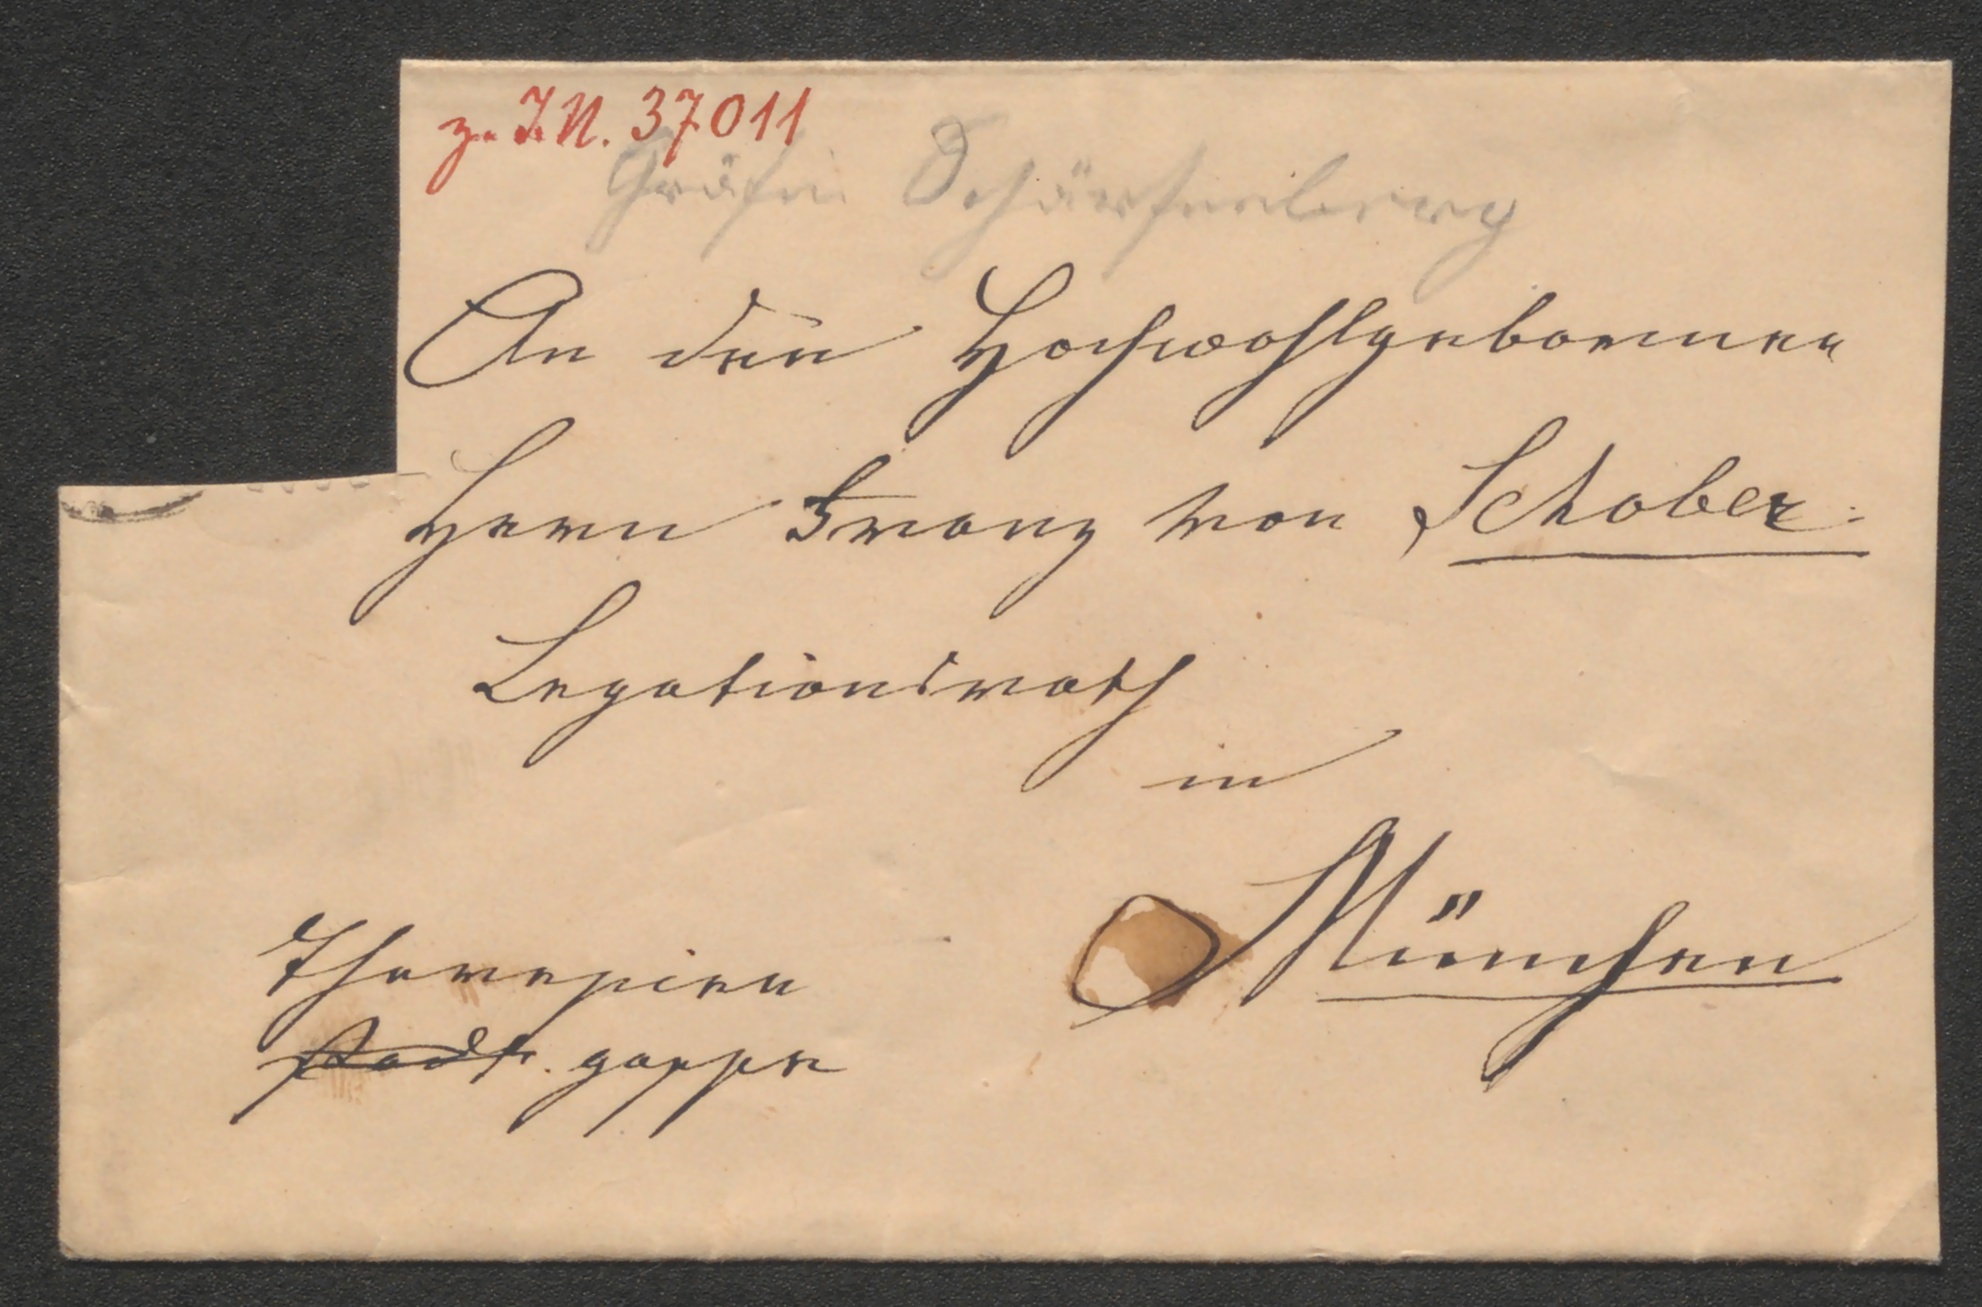 z. I.N. 37011
Gräfin Schärfenberg
An den Hochwohlgebornen
Herrn Franz von Schober
Legationsrath
in
München
Theresien
gasse